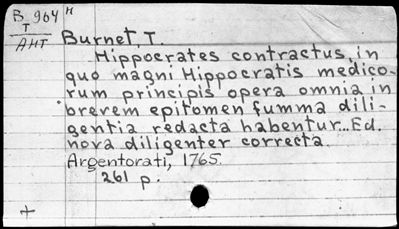 B 904 H
T
AHT
Burnet, T.
Hippocrates contractus, in
quo magni Hippocratis medico-
rum principis opera omnia in
brevem epitomen fumma dili-
gentia redacta habentur... Ed.
nova diligenter correcta.
Argentorati, 1765.
261 p.
+